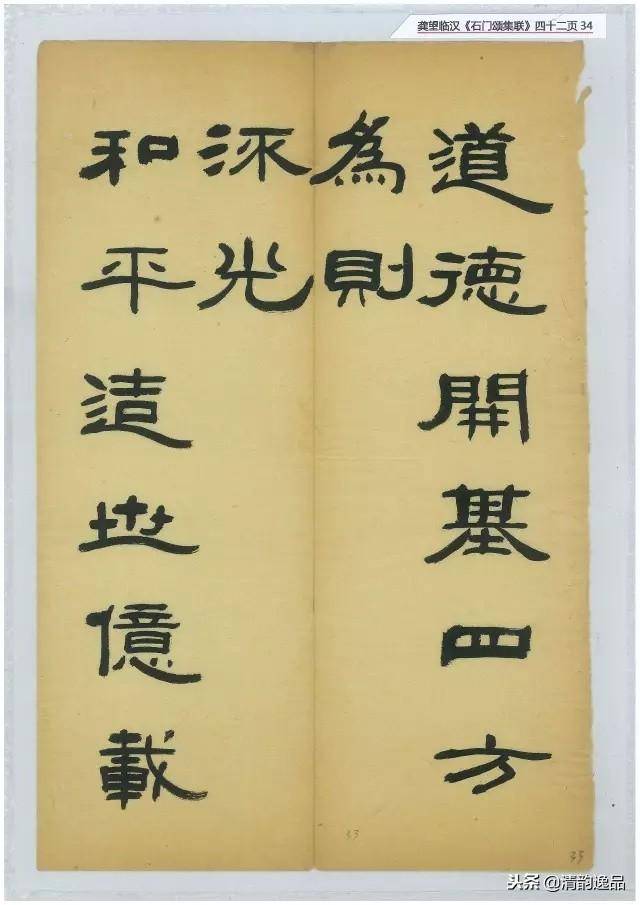 龚望临汉《石门颂集联》四十二页 34
道德開基四方
為則
和平造世億載
流光
33
33
头条@清韵逸品